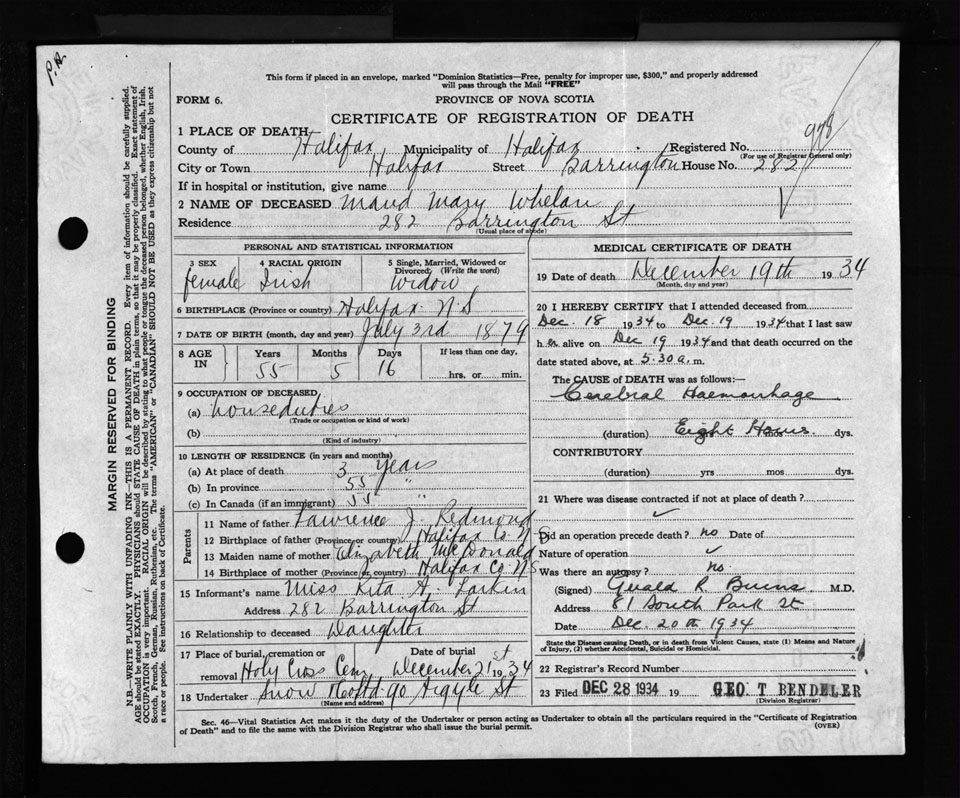 P.H.
This form if placed in an envelope, marked "Dominion Statistics—Free, penalty for improper use, $300," and properly addressed
will pass through the Mail "FREE"
FORM 6.
PROVINCE OF NOVA SCOTIA
CERTIFICATE OF REGISTRATION OF DEATH
978
1 PLACE OF DEATH
County of Halifax Municipality of Halifax Registered No.
(For use of Registrar General only)
City or Town Halifax Street Barrington House No. 282
If in hospital or institution, give name
2 NAME OF DECEASED Maud Mary Whelan
Residence 282 Barrington St
(Usual place of abode)
PERSONAL AND STATISTICAL INFORMATION
3 SEX female
4 RACIAL ORIGIN Irish
5 Single, Married, Widowed or
Divorced, (Write the word)
Widow
6 BIRTHPLACE (Province or country) Halifax N.S
7 DATE OF BIRTH (month, day and year) July 3rd 1879
8 AGE IN
Years 55
Months 5
Days 16
If less than one day,
hrs. or min.
9 OCCUPATION OF DECEASED
(a) houseduties
(Trade or occupation or kind of work)
(b)
(Kind of industry)
10 LENGTH OF RESIDENCE (in years and months)
(a) At place of death 3 years
(b) In province 55 "
(c) In Canada (if an immigrant) 55 "
Parents
11 Name of father Lawrence J. Redmond
12 Birthplace of father (Province or country) Halifax Co N.S
13 Maiden name of mother Elizabeth McDonald
14 Birthplace of mother (Province or country) Halifax Co N S
15 Informant's name Miss Rita A. Larkin
Address 282 Barrington St
16 Relationship to deceased Daughter
17 Place of burial, cremation or
removal Holy Cross Cem
Date of burial
December 21st 1934
18 Undertaker Snow & Co Ltd 90 Argyle St
(Name and address)
MEDICAL CERTIFICATE OF DEATH
19 Date of death December 19th 1934
(Month, day and year)
20 I HEREBY CERTIFY that I attended deceased from
Dec. 18 1934 to Dec. 19 1934 that I last saw
h er alive on Dec 19 1934 and that death occurred on the
date stated above, at 5.30 a. m.
The CAUSE of DEATH was as follows:—
Cerebral Haemorrhage
(duration) Eight Hours dys.
CONTRIBUTORY
(duration) yrs mos dys.
21 Where was disease contracted if not at place of death?
Did an operation precede death? no Date of
Nature of operation
Was there an autopsy? no
(Signed) Gerald R Burns M.D.
Address 81 South Park St
Date Dec. 20th 1934
State the Disease causing Death, or in death from Violent Causes, state (1) Means and Nature
of Injury, (2) whether Accidental, Suicidal or Homicidal.
22 Registrar's Record Number
23 Filed DEC 28 1934 19 GEO T BENDELER
(Division Registrar)
Sec. 46—Vital Statistics Act makes it the duty of the Undertaker or person acting as Undertaker to obtain all the particulars required in the "Certificate of Registration
of Death" and to file the same with the Division Registrar who shall issue the burial permit.
(OVER)
MARGIN RESERVED FOR BINDING
N.B.—WRITE PLAINLY WITH UNFADING INK—THIS IS A PERMANENT RECORD. Every item of information should be carefully supplied.
AGE should be stated EXACTLY. PHYSICIANS should STATE CAUSE OF DEATH in plain terms, so that it may be properly classified. Exact statement of
OCCUPATION is very important. RACIAL ORIGIN will be described by stating to what people or tongue the deceased person belonged, whether English, Irish,
Scotch, French, German, Russian, Ruthenian, etc. The terms "AMERICAN" or "CANADIAN" SHOULD NOT BE USED as they express citizenship but not
a race or people. See instructions on back of Certificate.